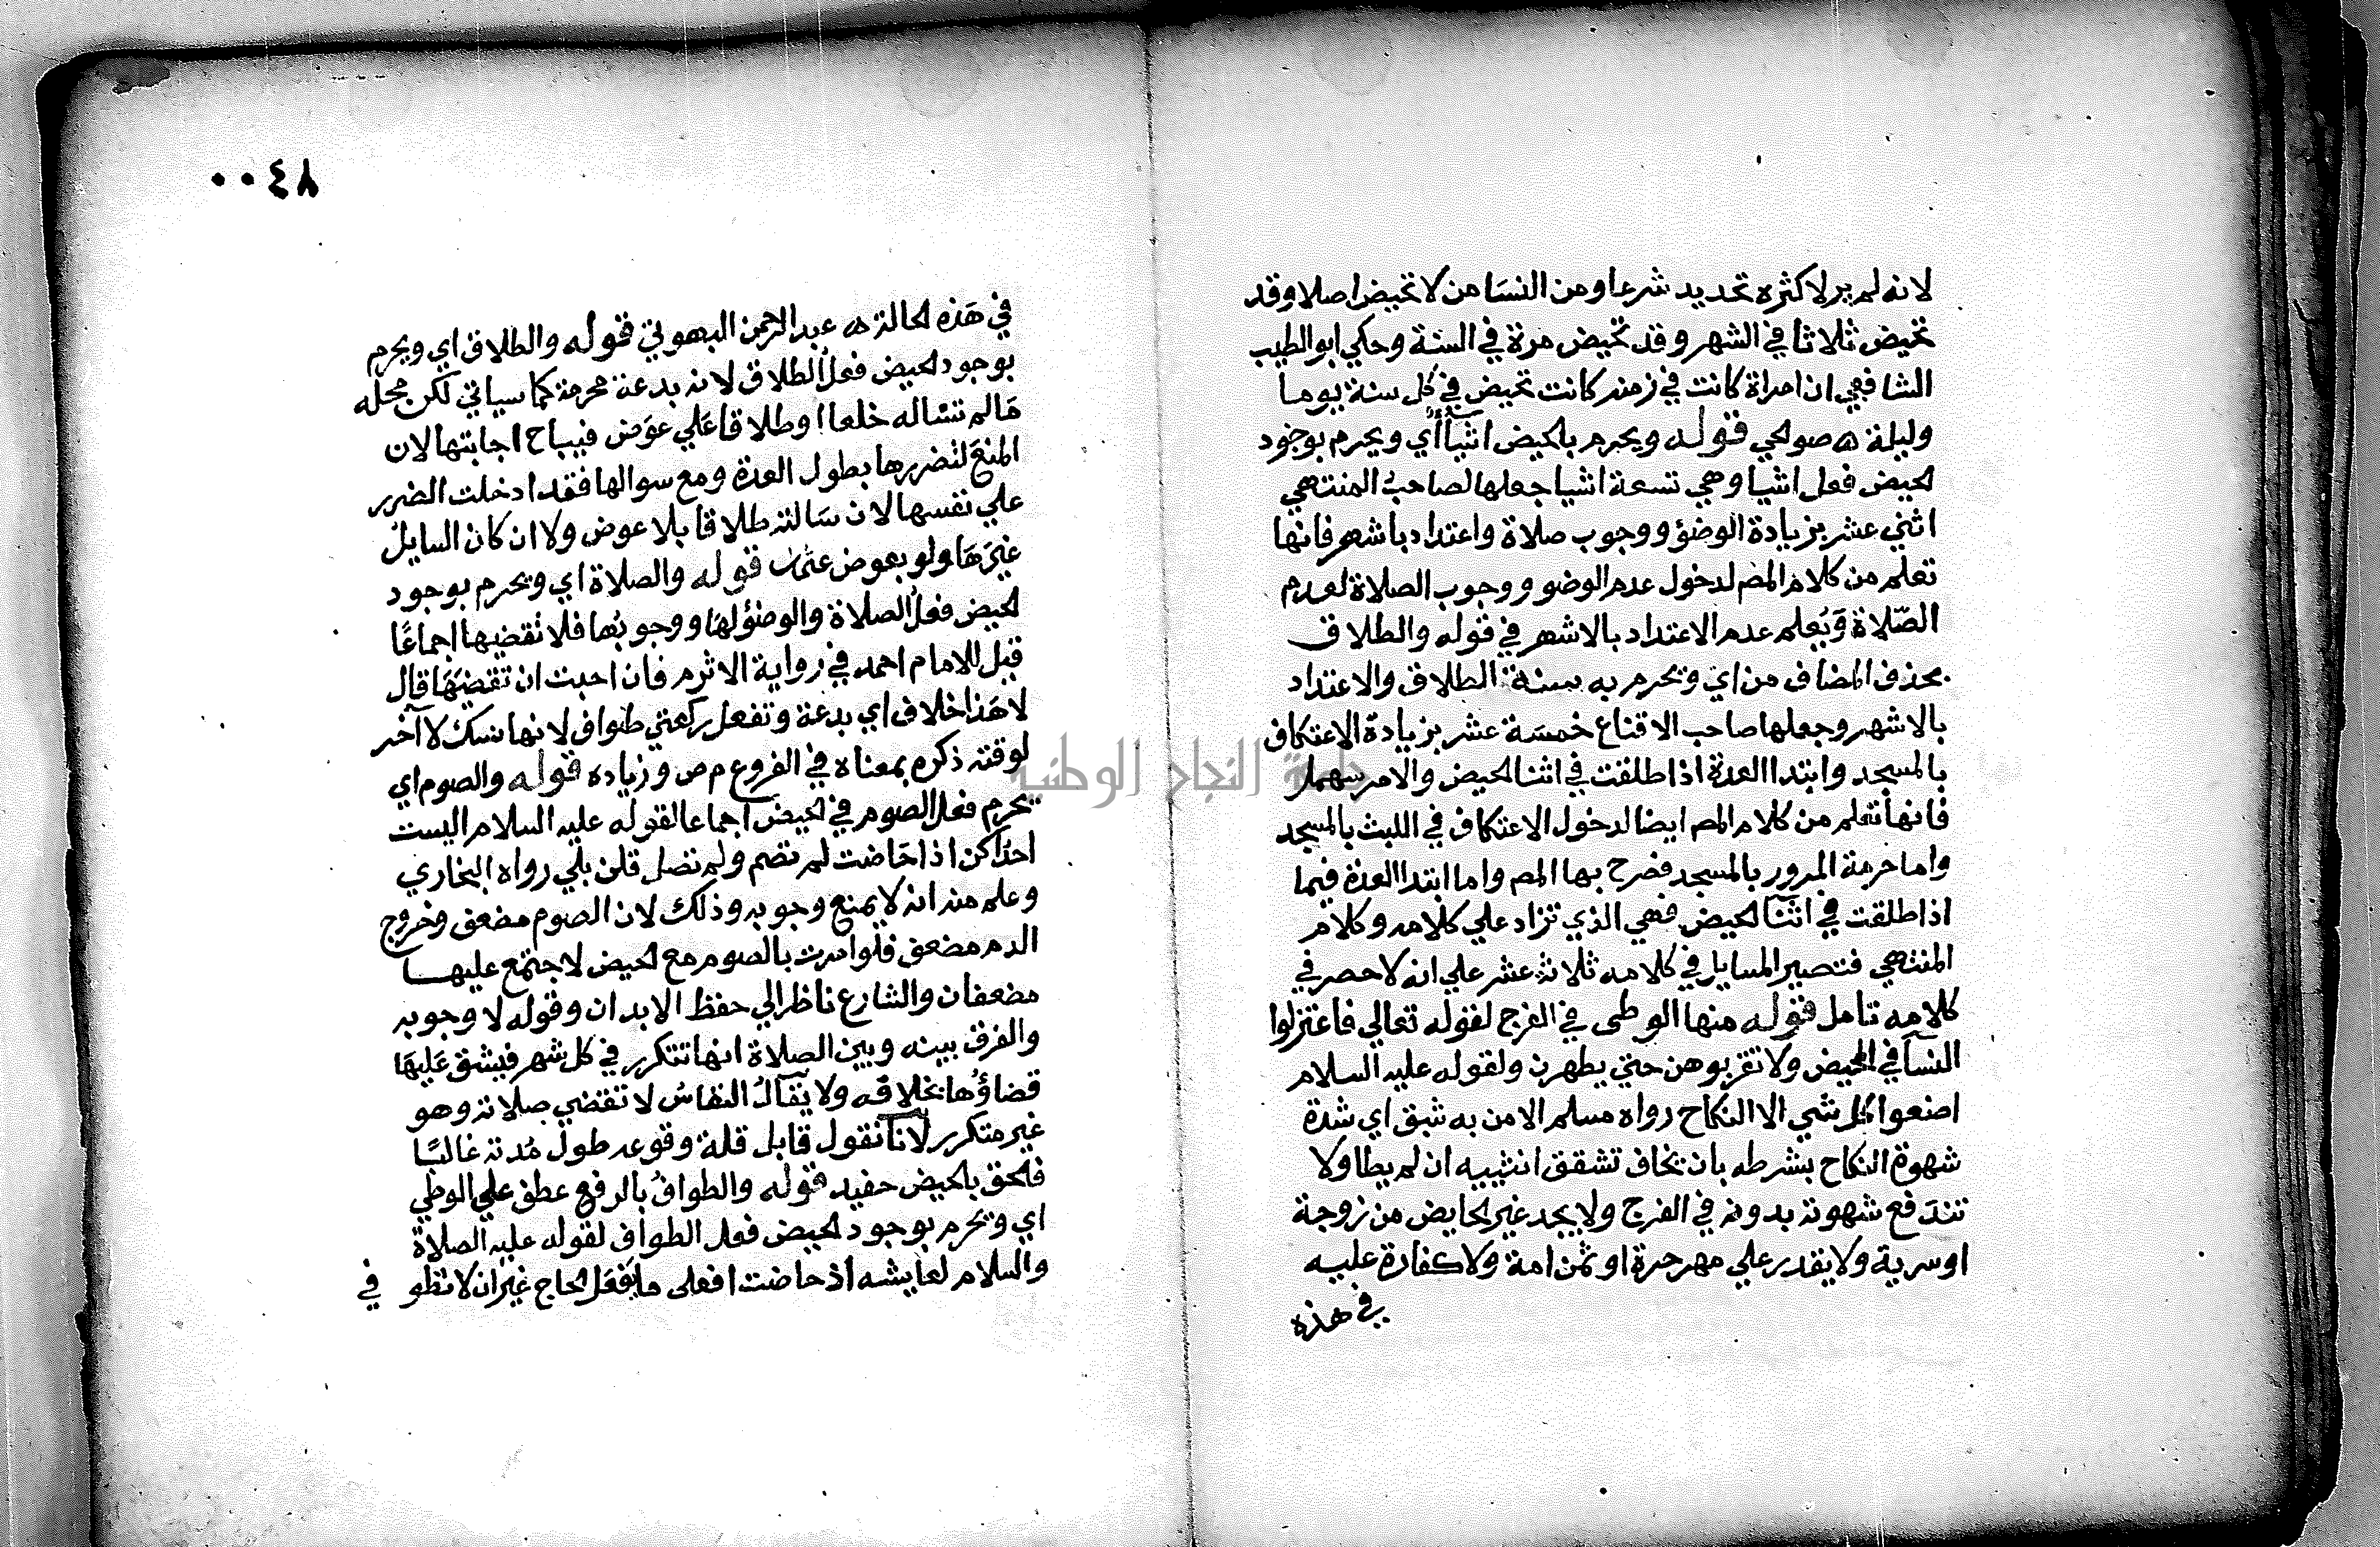 لانه لم يرد لاكثره تحديد شرعا ومن النسَا من لا تحيض اصلا وقد
تحيض ثلاثا في الشهر وقد تحيض مرة في السنة وحكي ابو الطيب
الشافعي ان امراة كانت في زمنه كانت تحيض في كل سنة يوما
وليلة ه صوالحي قوله ويحرم بالحيض اشيآأي ويحرم بوجود
الحيض فعل اشيا وهي تسعة اشيا جعلها لصاحب المنتهي
اثني عشر بزيادة الوضؤ ووجوب صلاة واعتداد باشهر فانها
تعلم من كلام المصم لدخول عدم الوضو ووجوب الصلاة لعدم
الصّلاة وَيُعلم عدم الاعتداد بالاشهر في قوله والطلاق
بحذف المضاف من اي ويحرم به سنة الطلاق والاعتداد
بالاشهر وجعلها صاحب الاقناع خمسَة عشر بزيادة الاعتكاف
بالمسجد وابتدا العدة اذا طلقت في اثنا الحيض والامر سهل
فانها تعلم من كلام المصم ايضا لدخول الاعتكاف في اللبث بالمسجد
واما حرمة المرور بالمسجد فصرح بها المصم واما ابتدا العدة فيما
اذا طلقت في اثنآ الحيض فهي الذي تزاد علي كلامه وكلام
المنتهي فتصير المسايل في كلامه ثلاثة عشر علي انه لا حصر في
كلامه تامل قوله منها الوطى في الفرج لقوله تعالي فاعتزلوا
النسآ في المحيض ولا تقربوهن حتي يطهرن ولقوله عليه السلام
اصنعوا كل شي الا النكاح رواه مسلم الا من به شبق اي شدة
شهوة النكاح بشرطه بان يخاف تشقق انثييه ان لم يطا ولا
تندفع شهوته بدونه في الفرج ولا يجد غير الحايض من زوجة
او سرية ولا يقدر علي مهر حرة او ثمن امة ولا كفارة عليه
في هذه
٠٠٤٨
في هَذه الحالة ه عبد الرحمن البهوتي قوله والطلاق اي ويحرم
بوجود الحيض فعلُ الطلاق لانه بدعة محرمة كما سياتي لكن محله
مَا لم تسَاله خلعا او طلاقا عَلي عوَض فيباح اجابتها لان
المنعَ لتضررها بطول العدة ومع سوالها فقد ادخلت الضرر
علي نفسها لا ن سَالته طلاقا بلا عوض ولا ان كان السايلُ
غيَرهَا ولو بعوض عثمان قوله والصلاة اي ويحرم بوجود
الحيض فعلُ الصلاة والوضؤ لهَا ووجوبُها فلا نُقضيها اجماعًا
قيل للامام احمد في رواية الاثرم فان احبت ان تقضيَهَا قال
لا هَذا خلاف اي بدعة وتفعل ركعتي طواف لانها نسك لا آخر
لوقته ذكره بمعناه في الفروع م ص وزياده قوله والصوم اي
يحرم فعل الصوم في الحيض اجماعا لقوله عليه السلام اليست
احداكن اذا حَاضت لم تصم ولم تصل قلن بلي رواه البخاري
وعلم منه انه لا يمنع وجوبه وذلك لان الصوم مضعف وخروج
الدم مضعف فلو امرت بالصوم مع الحيض لاجتمع عليها
مضعفان والشارع ناظر الي حفظ الابدان وقوله لا وجوبه
والفرق بينه وبين الصلاة انها تتكرر في كل شهر فيشق عَليهَا
قضاؤُها بخلافه ولا يُقالُ النفاسُ لا تقضي صلاته وهو
غير متكرر لانآ نقول قابل قلة وقوعه طول مُدته غالبًا
فالحق بالحيض حفيد قوله والطوافُ بالرفع عطف علي الوطي
اي ويحرم بوجود الحيض فعل الطواف لقوله عليه الصلاة
والسلام لعايشه اذ حاضت افعلى ما يفعَل الحاج غير ان لا تطو في
جامعة النجاح الوطنية